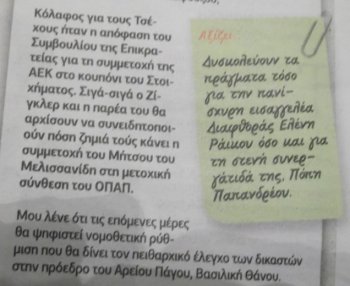 Κόλαφος για τους Τσέ-
χους ήταν η απόφαση του
Συμβουλίου της Επικρα-
τείας για τη συμμετοχή της
ΑΕΚ στο κουπόνι του Στοι-
χήματος. Σιγά-σιγά ο Ζί-
γκλερ και η παρέα του θα
αρχίσουν να συνειδητοποι-
ούν πόση ζημιά τούς κάνει η
συμμετοχή του Μήτσου του
Μελισσανίδη στη μετοχική
σύνθεση του ΟΠΑΠ.
Μου λένε ότι τις επόμενες μέρες
θα ψηφιστεί νομοθετική ρύθ-
μιση που θα δίνει τον πειθαρχικό έλεγχο των δικαστών
στην πρόεδρο του Αρείου Πάγου, Βασιλική Θάνου.
Αξίζει
Δυσκολεύουν τα
πράγματα τόσο
για την πανί-
σχυρη εισαγγελέα
Διαφθοράς Ελένη
Ράικου όσο και για
τη στενή συνερ-
γάτιδά της, Πόπη
Παπανδρέου.